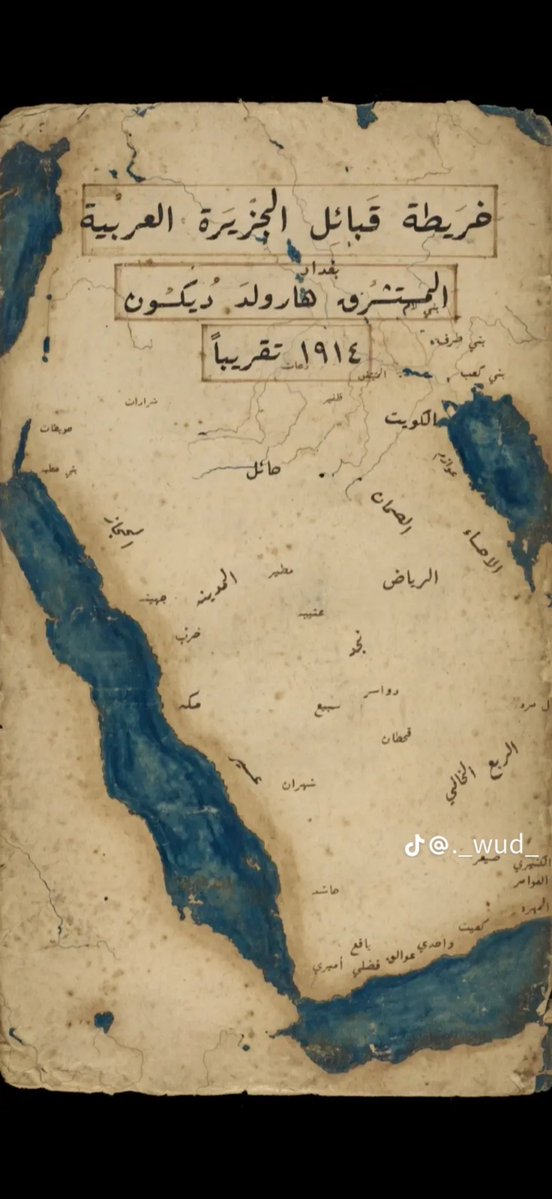 خريطة قبائل الجزيرة العربية
بغداد
المستشرق هارولد ديكسون
بني طرف
١٩١٤ تقريباً
بني كعب
المنتفق
ظفير
شرارات
الكويت
حويطات
عوازم
حائل
بني عطيه
الصمان
الحجاز
الاحساء
مطير
الرياض
المدينه
جهينه
عتيبه
حرب
نجد
دواسر
مكه
سبيع
ال مره
قحطان
الربع الخالي
عسير
شهران
@._wud_
صيعر
الكثيري
العوامر
حاشد
المهره
كعيت
يافع
واحدي
عوالق
فضلي
أميري